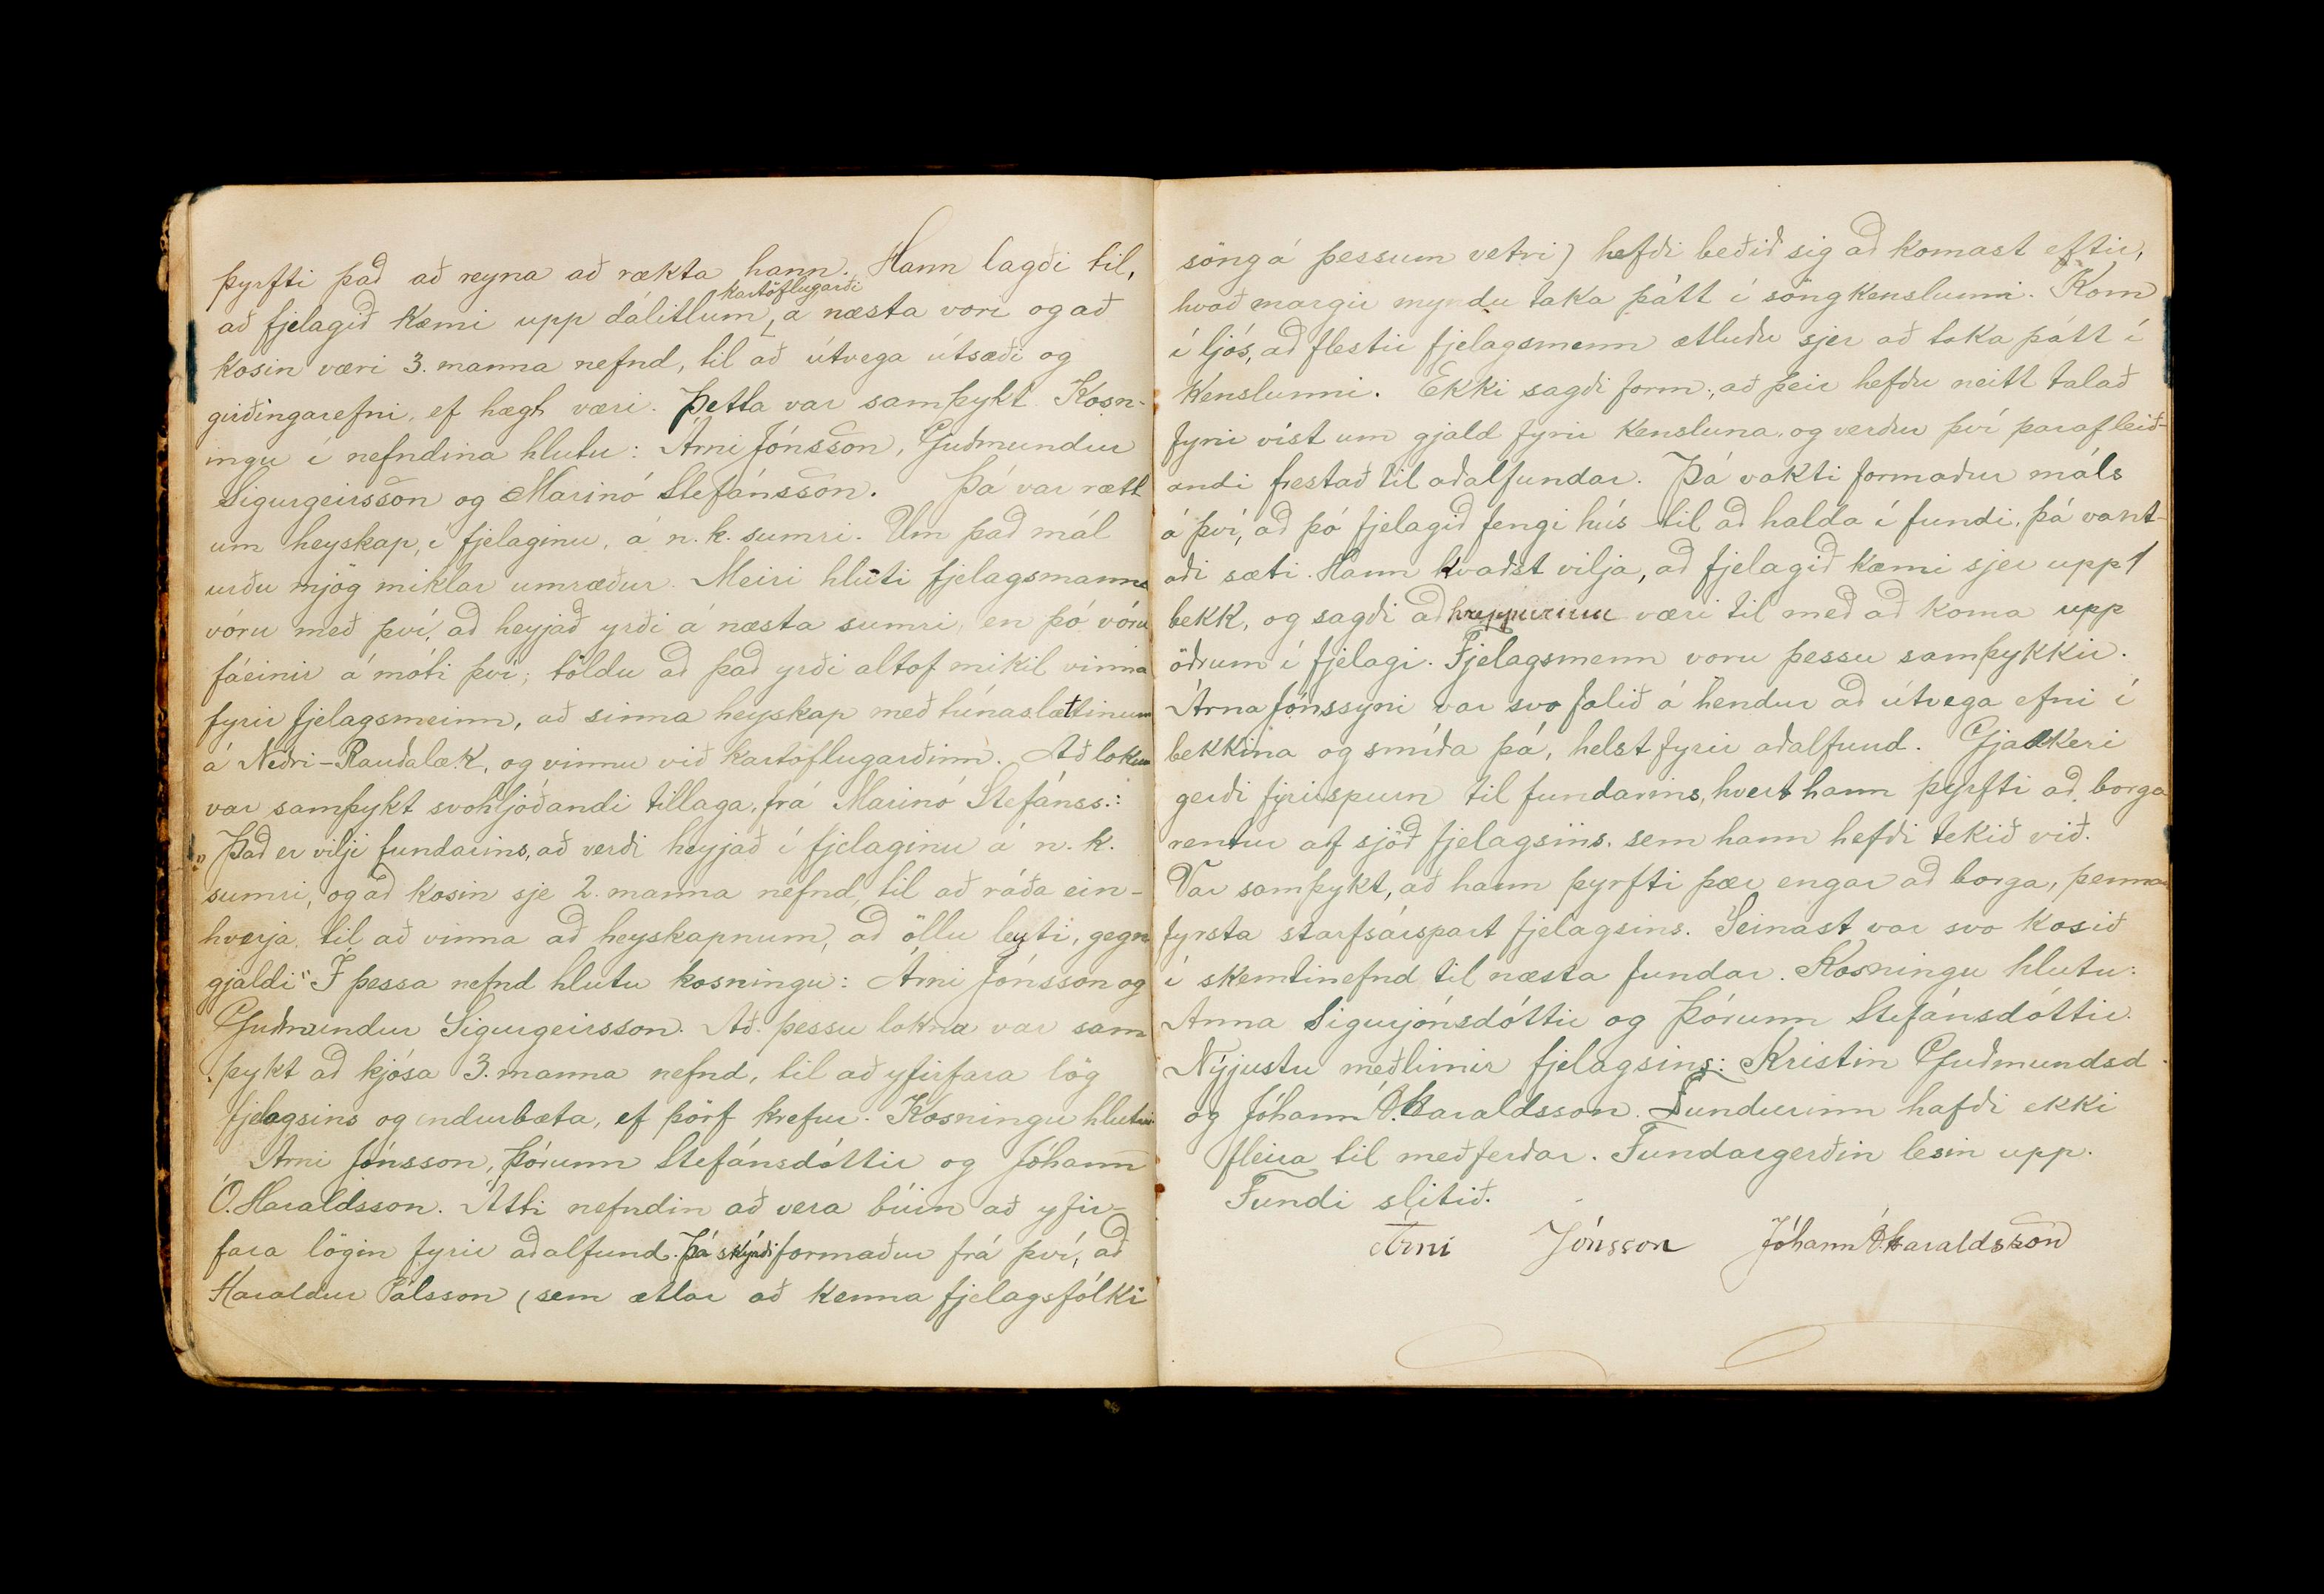 þyrfti það að reyna að rækta hann. Hann lagði til,
kartöflugarði
að fjelagið kæmi upp dálitlum á næsta vori og að
kosin væri 3. manna nefnd, til að útvega útsæði og
girðingarefni, ef hægt væri. Þetta var samþykt. Kosn-
ingu í nefndina hlutu: Árni Jónsson, Guðmundur
Sigurgeirsson og Marinó Stefánsson. Þá var rætt
um heyskap, í fjelaginu, á n.k. sumri. Um það mál
urðu mjög miklar umræður. Meiri hluti fjelagsmanna
vóru með því, að heyjað yrði á næsta sumri, en þó vóru
fáeinir á móti því; töldu að það yrði altof mikil vinna
fyrir fjelagsmeinn, að sinna heyskap með túnaslættinum
á Neðri-Rauðalæk, og vinnu við kartöflugarðinn. Að lokum
var samþykt svohljóðandi tillaga, frá Marinó Stefánss.:
„Það er vilji fundarins, að verði heyjað í fjelaginu á n.k.
sumri, og að kosin sje 2. manna nefnd, til að ráða ein-
hverja, til að vinna að heyskapnum, að öllu leyti, gegn
gjaldi“ Í þessa nefnd hlutu kosningu: Árni Jónsson og
Guðmundur Sigurgeirsson. Að þessu loknu var sam
þykt að kjósa 3. manna nefnd, til að yfirfara lög
fjelagsins og endurbæta, ef þörf krefur. Kosningu hlutu:
Árni Jónsson, Þórunn Stefánsdóttir og Jóhann
Ó. Haraldsson. Átti nefndin að vera búin að yfir-
fara lögin fyrir aðalfund. Þá skýrði formaður frá því, að
Haraldur Pálsson (sem ætlar að kenna fjelagsfólki
söng á þessum vetri) hefði beðið sig að komast eftir,
hvað margir myndu taka þátt í söngkenslunni. Kom
í ljós, að flestir fjelagsmenn ætluðu sjer að taka þátt í
kenslunni. Ekki sagði form., að þeir hefðu neitt talað
fyrir víst um gjald fyrir kensluna, og verður því þarafleið-
andi frestað til aðalfundar. Þá vakti formaður máls
á því, að þó fjelagið fengi hús til að halda í fundi, þá vant-
aði sæti. Hann kvaðst vilja, að fjelagið kæmi sjer upp 1
bekk, og sagði að hreppurinn væri til með að koma upp
öðrum í fjelagi. Fjelagsmenn voru þessu samþykkir.
Árna Jónssyni var svo falið á hendur að útvega efni í
bekkina og smíða þá, helst fyrir aðalfund. Gjaldkeri
gerði fyrirspurn til fundarins, hvert hann þyrfti að borga
rentur af sjóð fjelagsins, sem hann hefði tekið við.
Var samþykt, að hann þyrfti þær engar að borga, þennan
fyrsta starfsárspart fjelagsins. Seinast var svo kosið
í skemtinefnd til næsta fundar. Kosningu hlutu:
Anna Sigurjónsdóttir og Þórunn Stefánsdóttir.
Nýjustu meðlimir fjelagsins: Kristín Guðmundsd.
og Jóhann Ó. Haraldsson. Fundurinn hafði ekki
fleira til meðferðar. Fundargerðin lesin upp.
Fundi slitið.
Árni Jónsson Jóhann Ó. Haraldsson